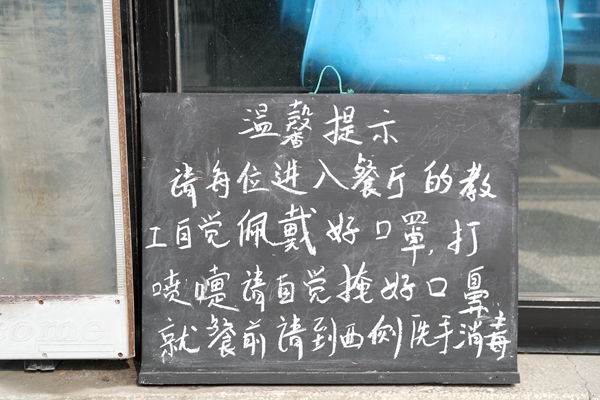 温馨提示
请每位进入餐厅的教
工自觉佩戴好口罩,打
喷嚏请自觉掩好口鼻
就餐前请到西侧洗手消毒
come